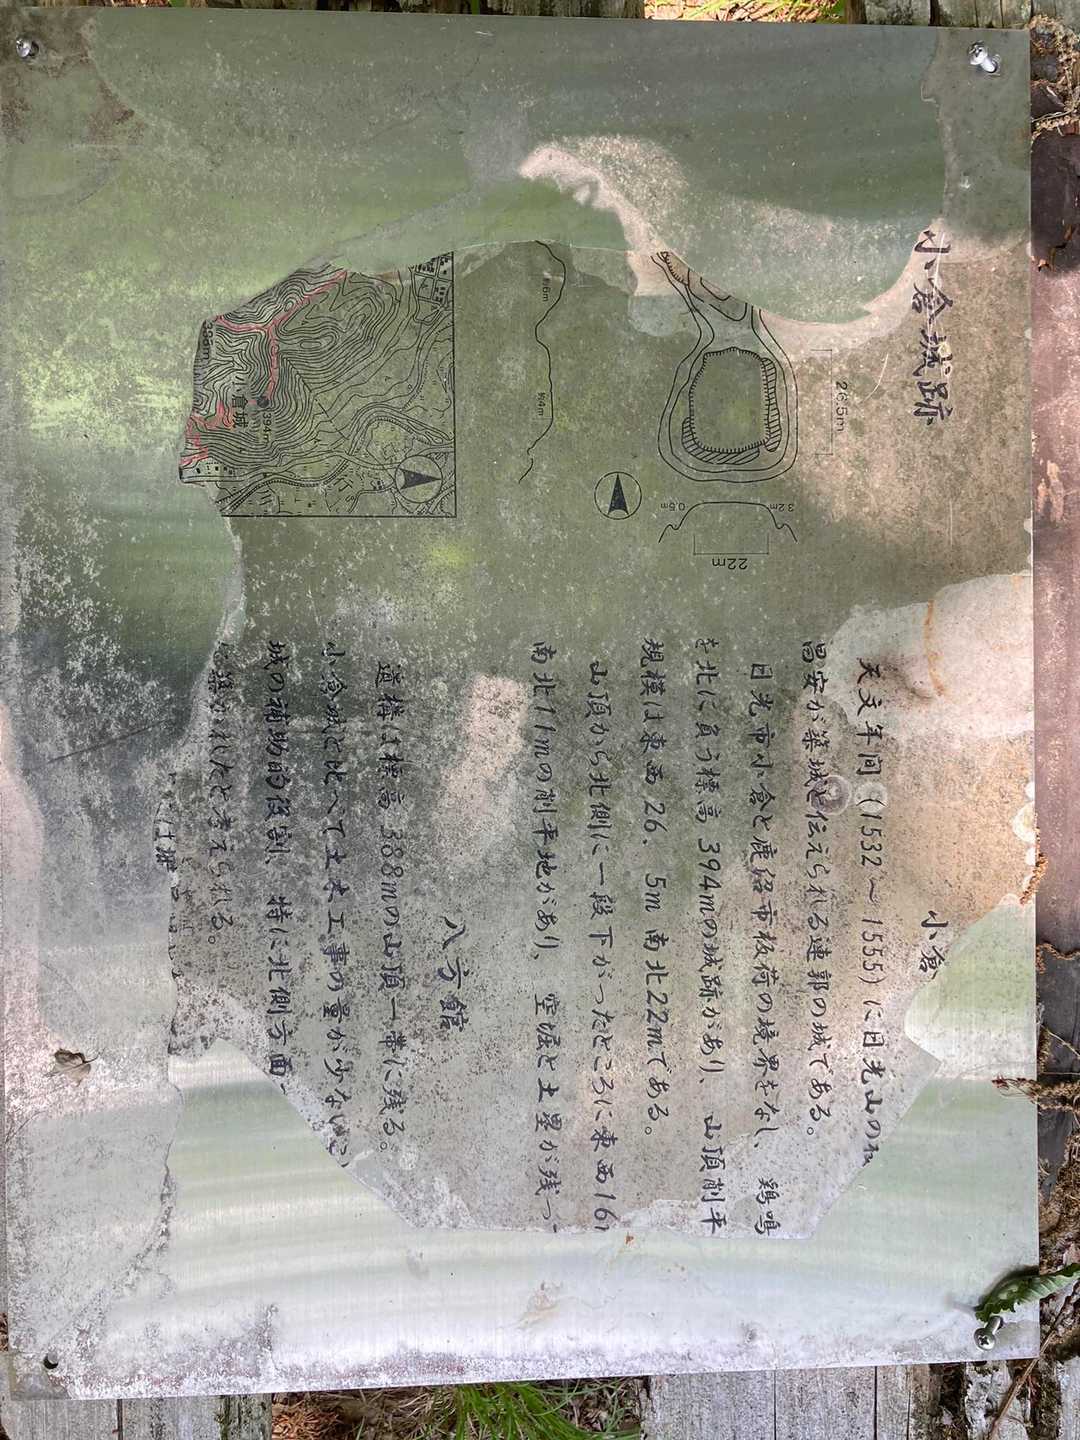 小倉城跡
26.5m
3.2m
0.5m
22m
約6m
約4m
小倉城
394m
小倉
天文年間(1532～1555)に日光山の
昌安が築城と伝えられる連郭の城である。
日光市小倉と鹿沼市板荷の境界をなし、鶏鳴
を北に負う標高394mの城跡があり、山頂削平
規模は東西26.5m 南北22mである。
山頂から北側に一段下がったところに東西16
南北11mの削平地があり、空堀と土塁が残っ
八方館
遺構は標高388mの山頂一帯に残る。
小倉城と比べて土木工事の量が少ない
城の補助的役割、特に北側方面
築かれたと考えられる。